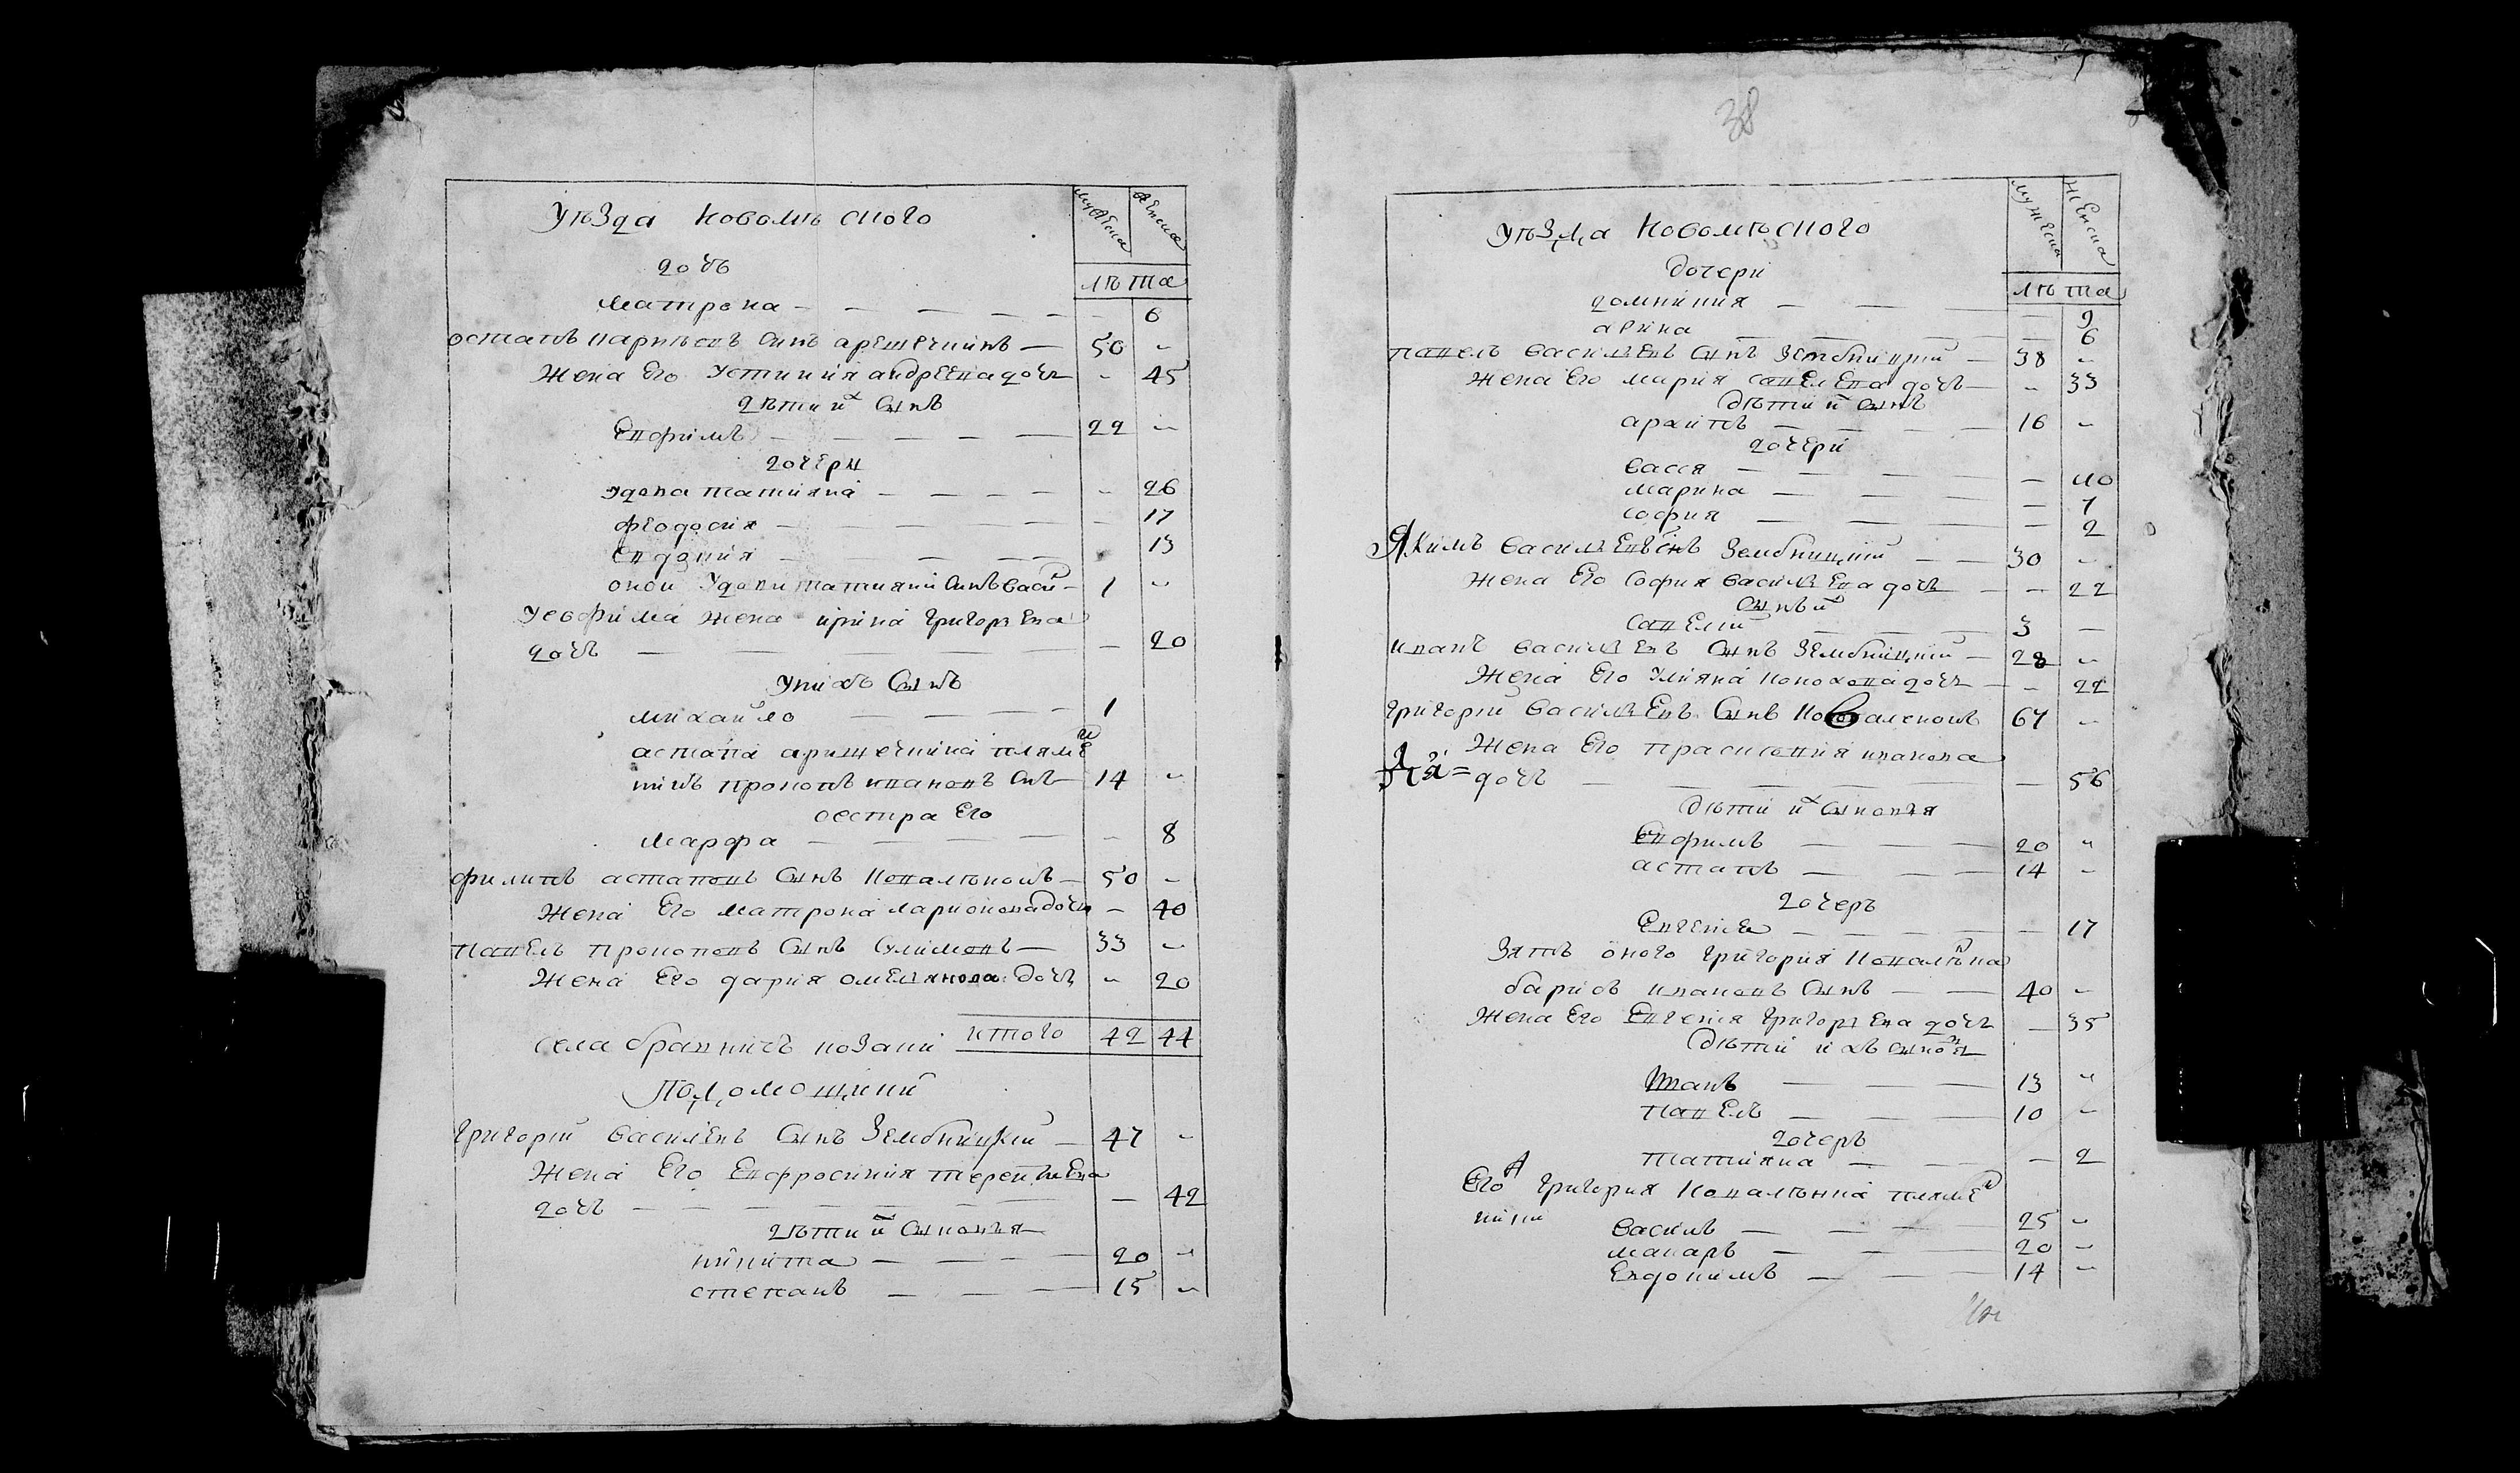 уѣзда новомѣсного
мужеска
женска
дочь
лѣта
матрона — — — — — - 6
остапъ кариѣевъ синъ арешечникъ — 50 „
жена его устиния андреева дочь - 45
дѣти ихъ синъ
евфимъ — — — — — 22 „
дочери
удова татияна — — — — - 26
феодосия — — — — - 17
евдокия — — — - 13
оной удови татияни синъ васи — 1 „
у ево фима жена ирина григорьева
дочь — — — - 20
у нихъ синъ
михайло — — — — 1
астапа арищечнина племе
никъ прокопъ ивановъ синъ — 14 „
сестра его
марфа — — — — - 8
филипъ астаповъ синъ ковалѣновъ — 50 „
жена его матрона ларионова дочь - 40
павелъ прокоповъ синъ сулимовъ — 33 „
жена его дария омелянова дочь „ 20
итого 42 44
села браннигъ козаки
подмощики
григорий василевъ синъ зембницкий — 47 „
жена его евфросиния терентиева
дочь — — — — — — - 42
дѣти ихъ синовья
никита — — — — 20 „
степанъ — — — — 15 „
38
уѣзда новомѣсного
мужеска
женска
дочери
лѣта
домникия — — — — 9
арина — — — — 6
павелъ василевъ синъ зембницкий — 38 „
жена его мария савелева дочь — „ 33
дѣти ихъ синъ
архипъ — — — — 16 „
дочери
васся — — — — 10
марина — — — — 7
софия — — — — 2
якимъ василевъ синъ зембницкий — — 30 „
жена его софия василева дочь — - 22
синъ ихъ
савелий — — — 3 —
иванъ василевъ синъ зембницкий — 28 „
жена его улияна кононова дочь — „ 22
григорий василевъ синъ коваленовъ 67 „
жена его прасковия иванова
дочь — — — — — — 56
дѣти ихъ синовья
евфимъ — — — 20 „
астапъ — — — 14 „
дочеръ
евгения — — — — — 17
зять оного григория ковалѣнка
барисъ ивановъ синъ — — 40 „
жена его евгения григорьева дочь — 35
дѣти ихъ синовя
иванъ — — — 13 „
павелъ — — — 10 „
дочеръ
татияна — — — 2
его григория ковалѣнка племе
ники
василь — — — 25 „
макаръ — — — 20 „
евдокимъ — — — 14 „